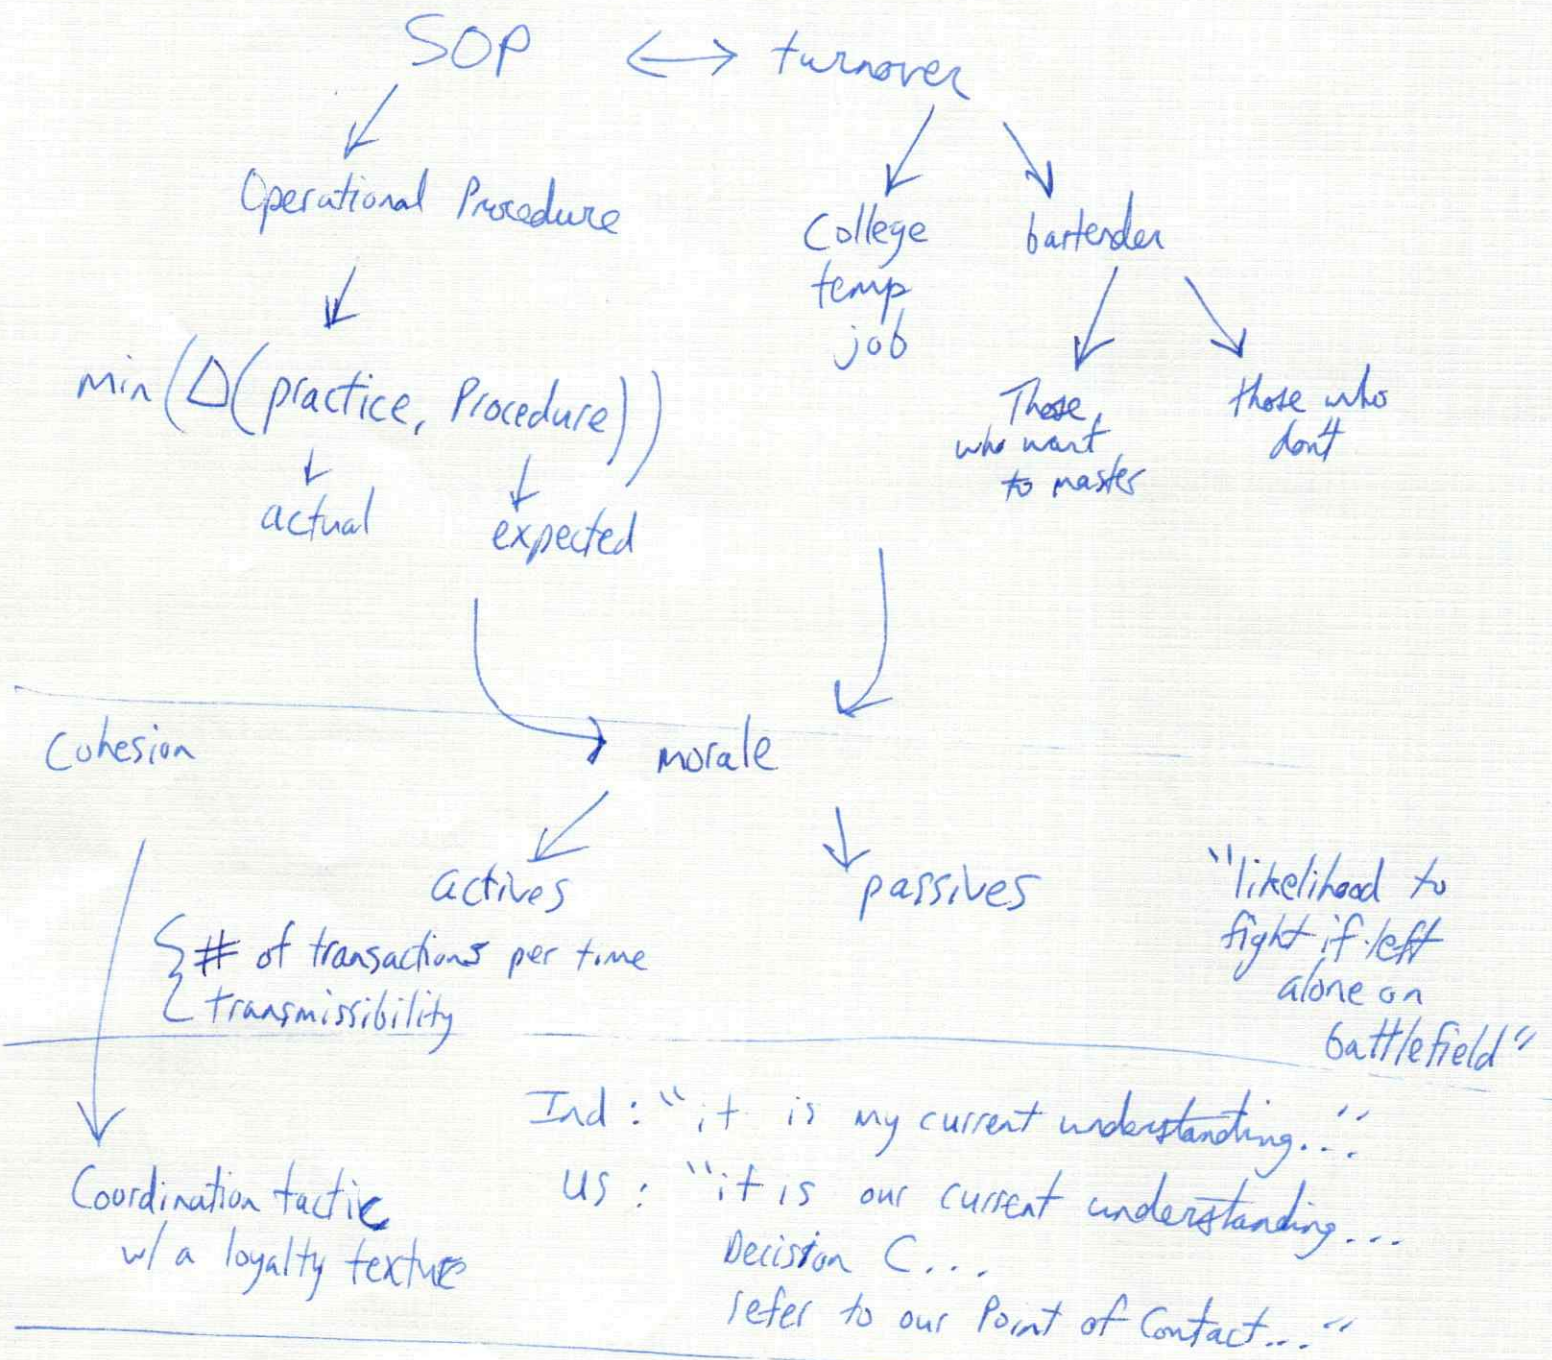 SOP ↔ turnover
Operational Procedure
College
temp
job
bartender
min(Δ(practice, Procedure))
actual
expected
Those,
who want
to master
those who
don't
Cohesion
morale
actives
passives
{# of transactions per time
transmissibility
"likelihood to
fight if left
alone on
battlefield"
Coordination tactic
w/ a loyalty texture
Ind: "it is my current understanding..."
US: "it is our current understanding...
Decision C...
refer to our Point of Contact..."